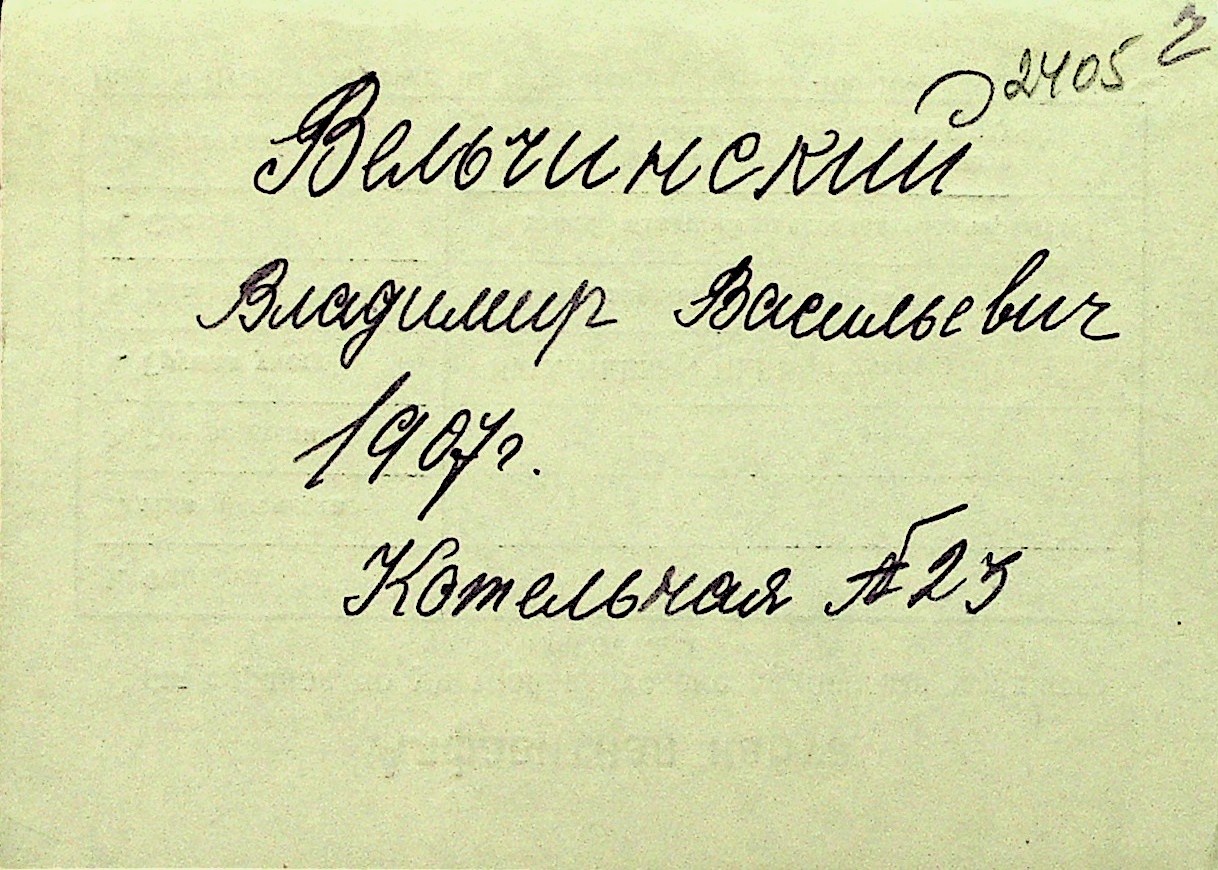 2405 г
Вельчинский
Владимир Васильевич
1907г.
Котельная №23